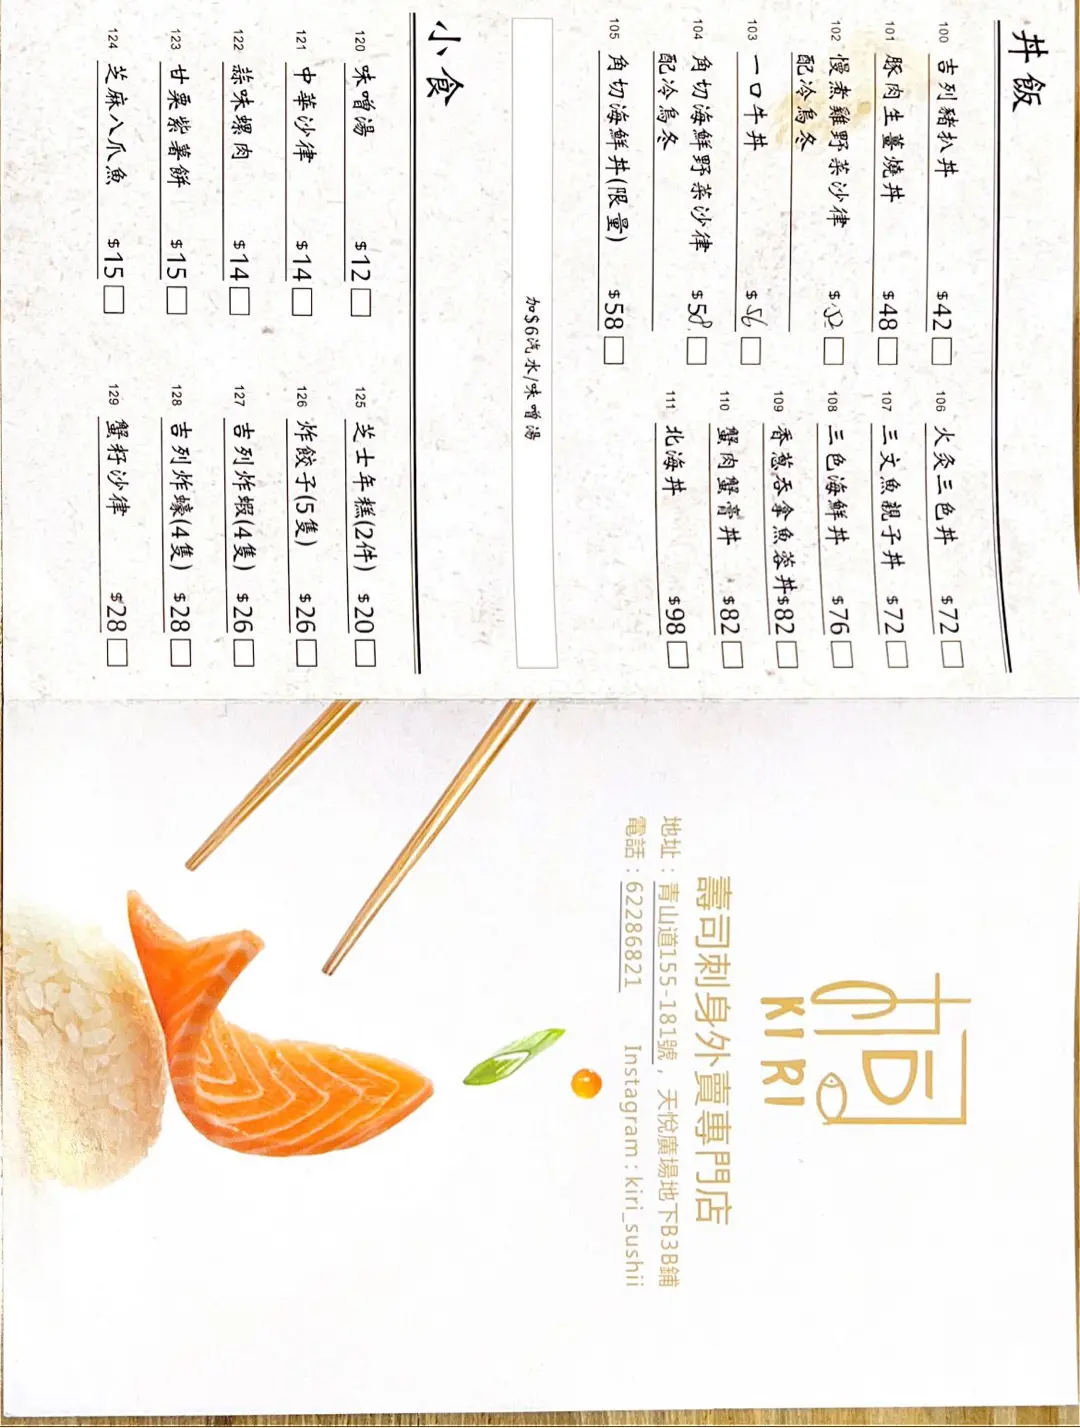 丼飯
100 吉列豬扒丼 $42
101 豚肉生薑燒丼 $48
102 慢煮雞野菜沙律 $52
配冷烏冬
103 一口牛丼 $56
104 角切海鮮野菜沙律 $58
配冷烏冬
105 角切海鮮丼(限量) $58
106 火灸三色丼 $72
107 三文魚親子丼 $72
108 三色海鮮丼 $76
109 香蔥吞拿魚蓉丼$82
110 蟹肉蟹膏丼 $82
111 北海丼 $98
加$6汽水/味噌湯
小食
120 味噌湯 $12
121 中華沙律 $14
122 蒜味螺肉 $14
123 甘栗紫薯餅 $15
124 芝麻八爪魚 $15
125 芝士年糕(2件) $20
126 炸餃子(5隻) $26
127 吉列炸蝦(4隻) $26
128 吉列炸蠔(4隻) $28
129 蟹籽沙律 $28
KIRI
壽司刺身外賣專門店
地址：青山道155-181號，天悅廣場地下B3B鋪
電話：62286821 Instagram：kiri_sushii